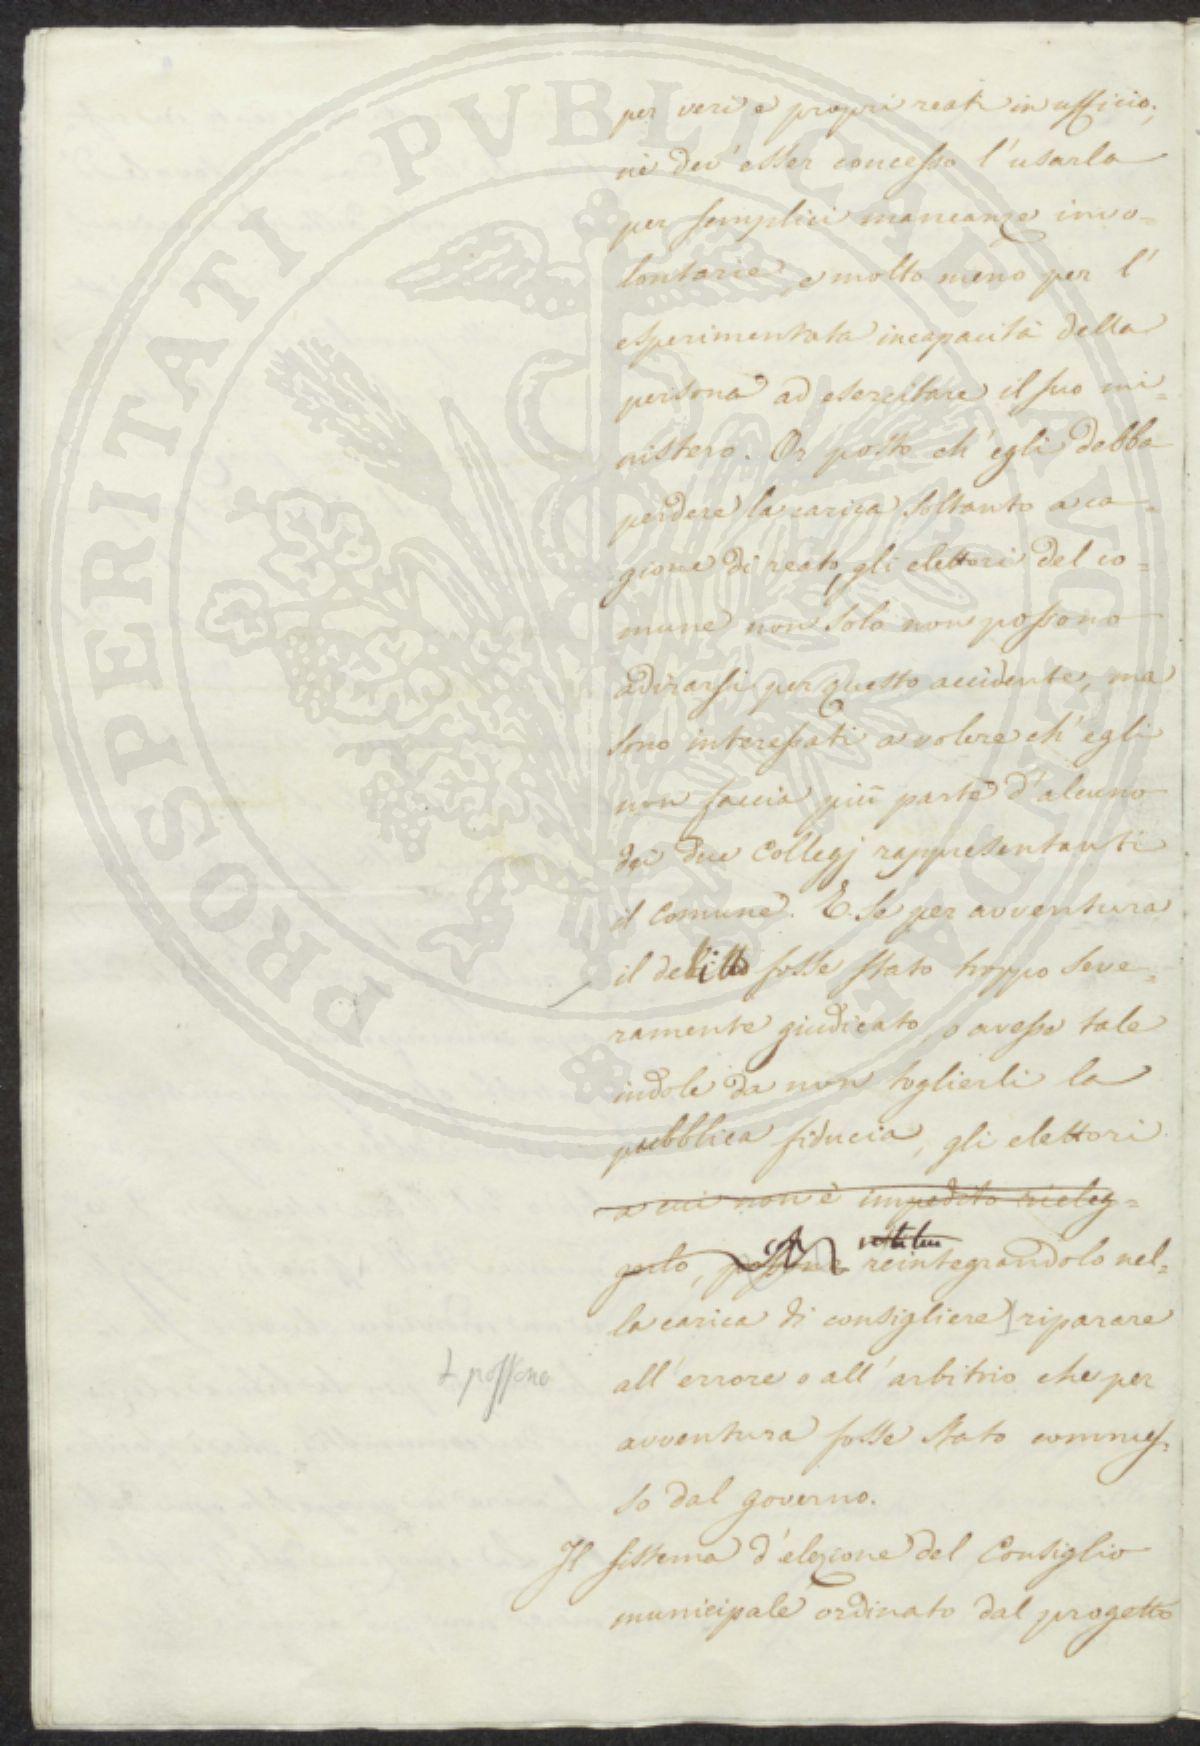 per veri e proprj reati in ufficio;
nè dev' esser concesso l'usarla
per semplici mancanze invo=
lontarie, e molto meno per l'
esperimentata incapacità della
persona ad esercitare il suo mi=
nistero. Or posto ch' egli debba
perdere la carica soltanto a ca=
gione di reato, gli elettori del co=
mune non solo non possono
adirarsi per questo accidente, ma
sono interessati a volere ch' egli
non faccia più parte d'alcuno
dei due Collegj rappresentanti
il Comune. E se per avventura
il delitto fosse stato troppo seve=
ramente giudicato, o avesse tale
indole da non toglierli la
pubblica fiducia, gli elettori
a cui non è impedito rieleg=
gerlo, possono reintegrandolo nel=
la carica di consigliere riparare
possono
all' errore o all' arbitrio che per
avventura fosse stato commes=
so dal governo.
Il sistema d'elezione del Consiglio
municipale ordinato dal progetto
PROSPERITATI PVBLICAE AVGENDAE